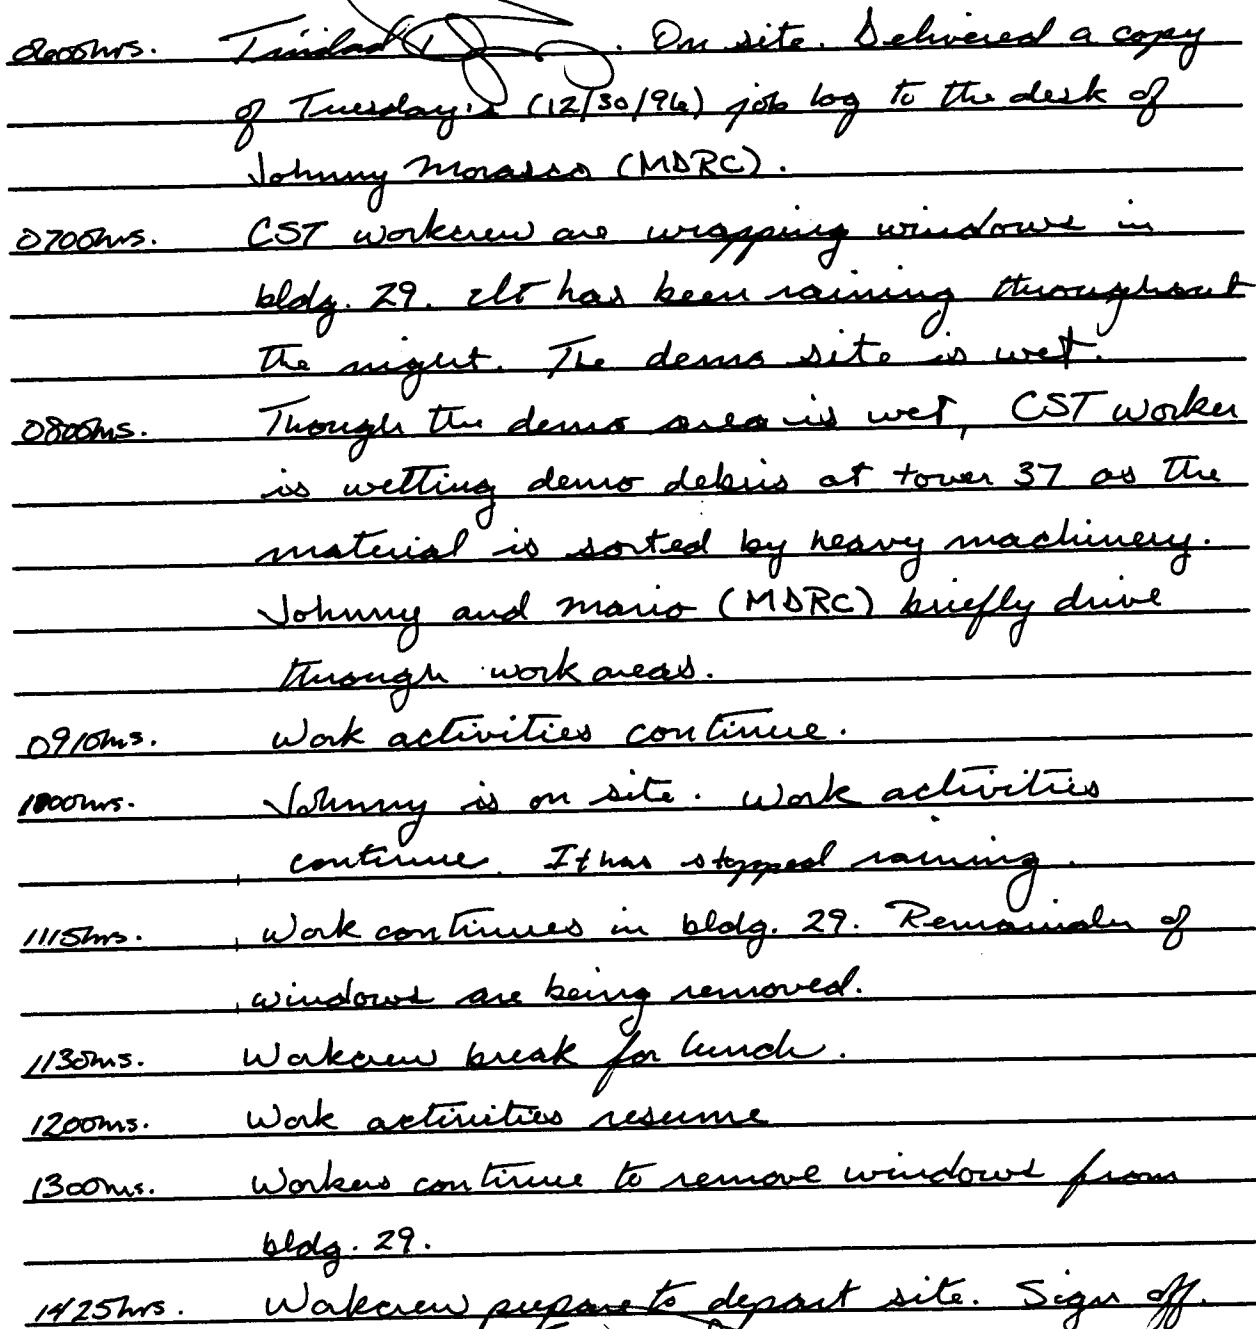 0600hrs. Trinidad . On site. Delivered a copy
of Tuesday's (12/30/96) job log to the desk of
Johnny Morasco (MDRC).
0700hrs. CST workcrew are wrapping windows in
bldg. 29. It has been raining throughout
the night. The demo site is wet.
0800hrs. Though the demo area is wet, CST worker
is wetting demo debris at tower 37 as the
material is sorted by heavy machinery.
Johnny and Mario (MDRC) briefly drive
through work areas.
0910hrs. Work activities continue.
1000hrs. Johnny is on site. Work activities
continue. It has stopped raining.
1115hrs. Work continues in bldg. 29. Remainder of
windows are being removed.
1130hrs. Workcrew break for lunch.
1200hrs. Work activities resume
1300hrs. Workers continue to remove windows from
bldg. 29.
1425hrs. Workcrew prepare to depart site. Sign off.